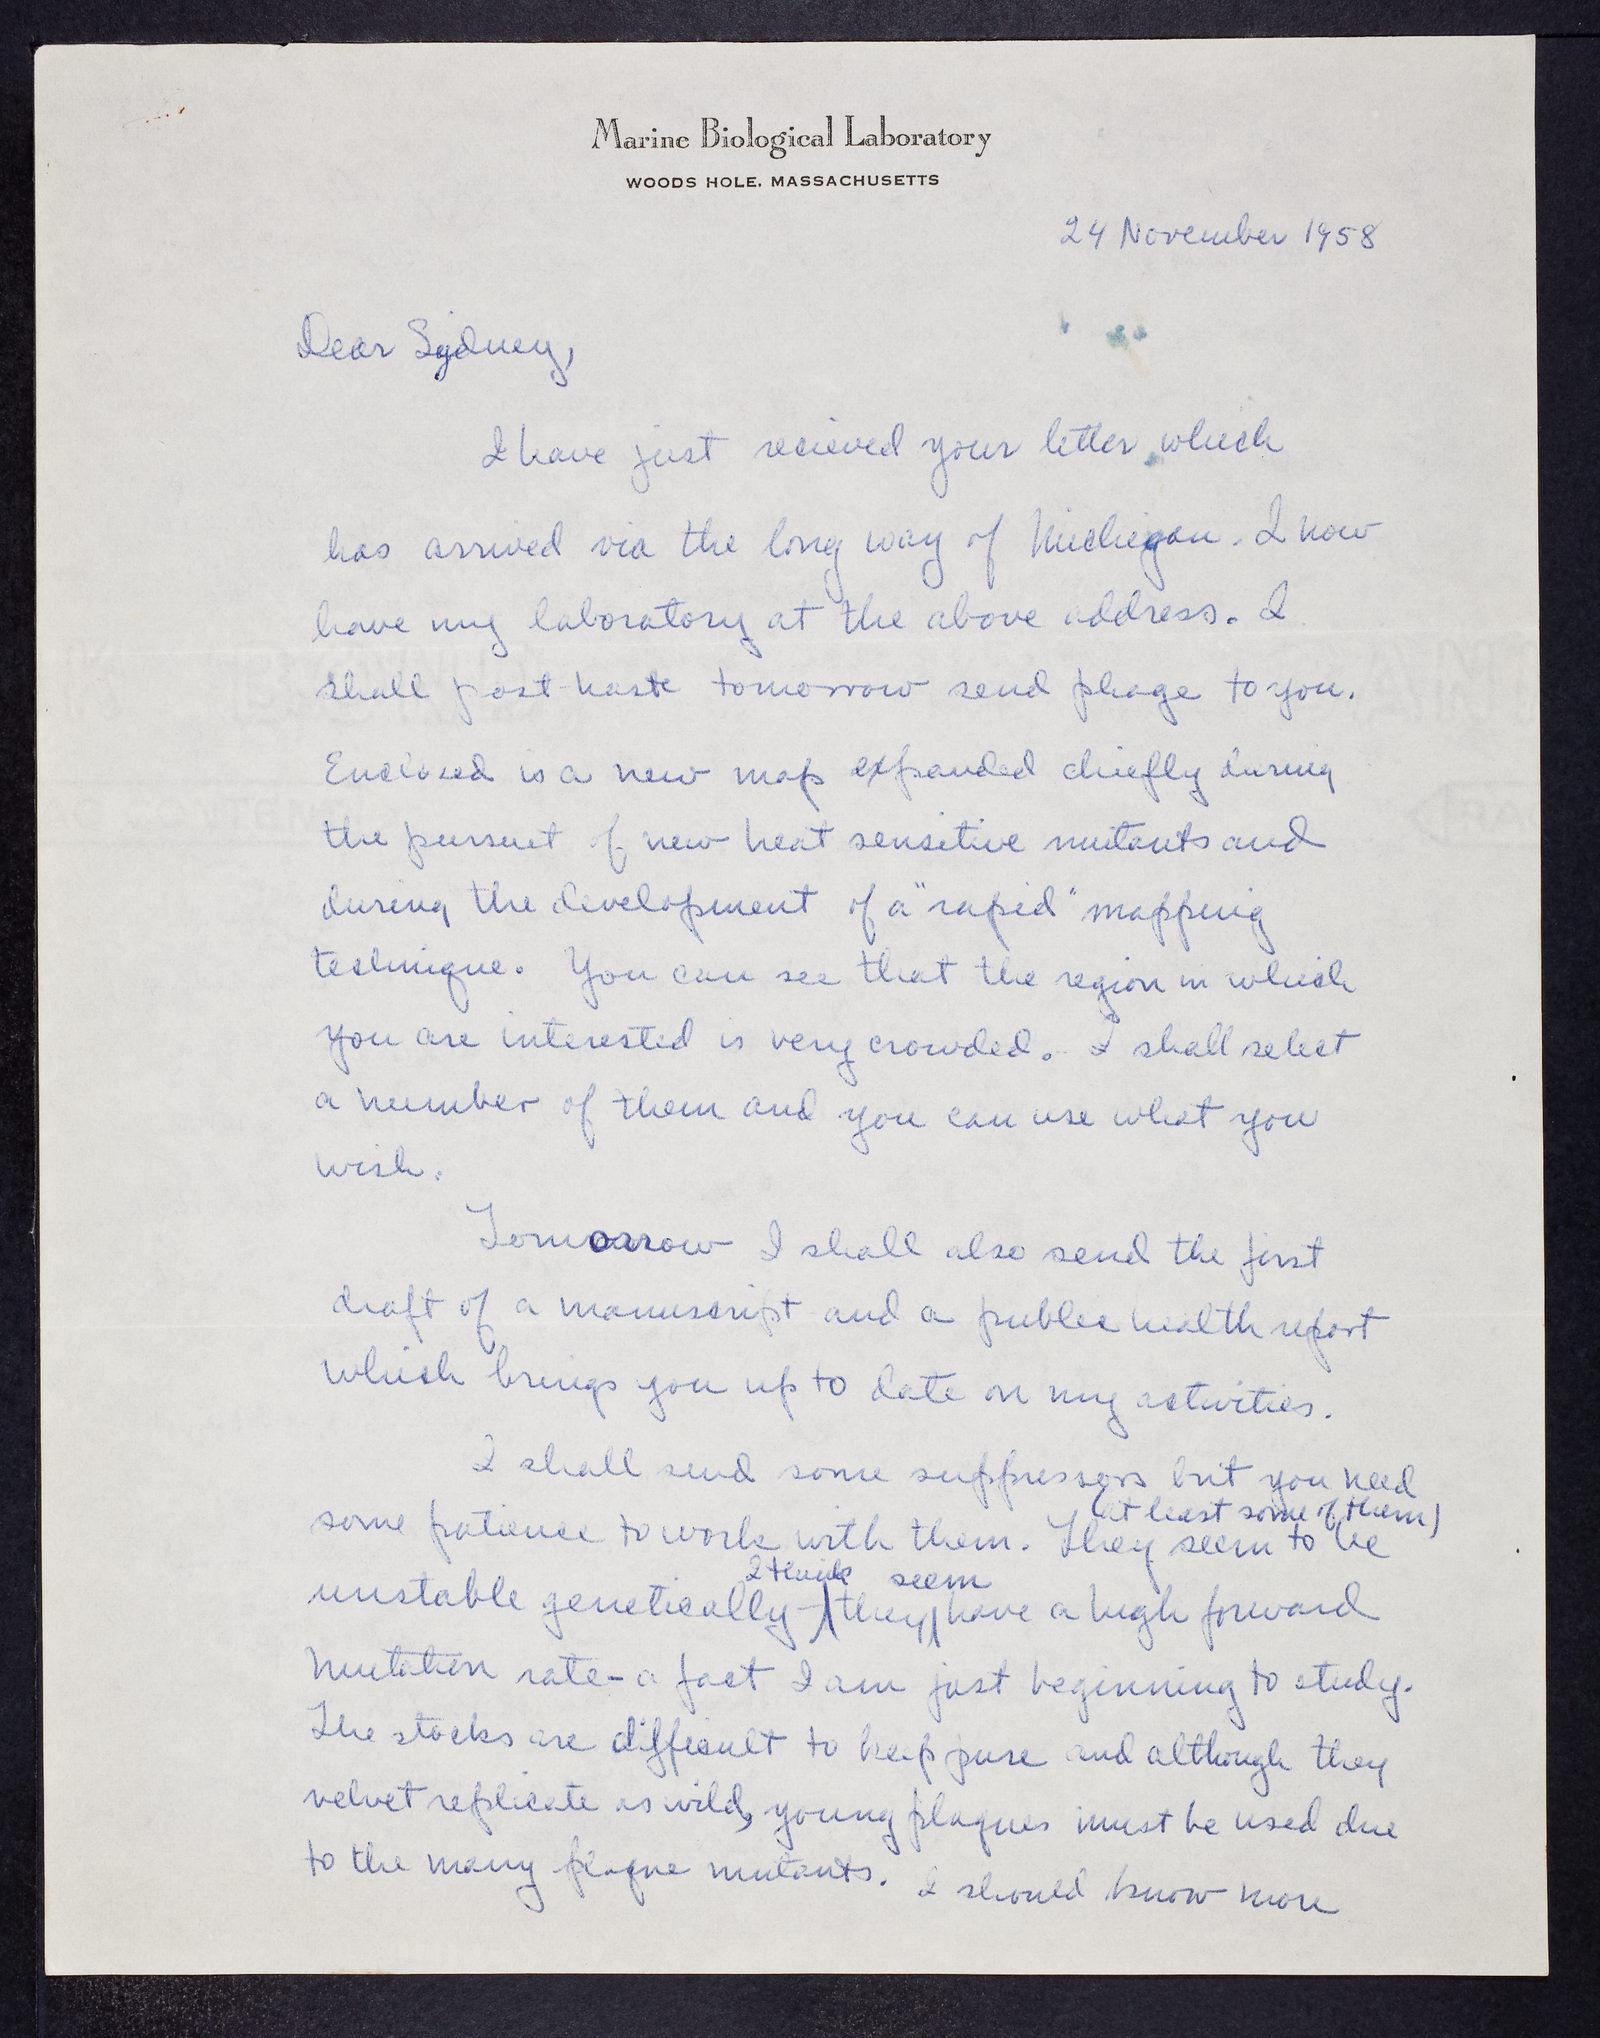 Marine Biological Laboratory
WOODS HOLE, MASSACHUSETTS
24 November 1958
Dear Sydney,
I have just recieved your letter which
has arrived via the long way of Michigan. I now
have my laboratory at the above address. I
shall post haste tomorrow send phage to you.
Enclosed is a new map expanded chiefly during
the pursuet of new heat sensitive mutants and
during the development of a "rapid" mapping
technique. You can see that the region in which
you are interested is very crowded. I shall select
a number of them and you can use what you
wish.
Tomorrow I shall also send the first
draft of a manuscript and a public health report
which brings you up to date on my activities.
I shall send some suppressors but you need
(at least some of them)
some patience to work with them. They seem to be
I think seem
unstable genetically - they have a high forward
mutation rate - a fact I am just beginning to study.
The stocks are difficult to keep pure and although they
velvet replicate as wild, young plaques must be used due
to the many plaque mutants. I should know more